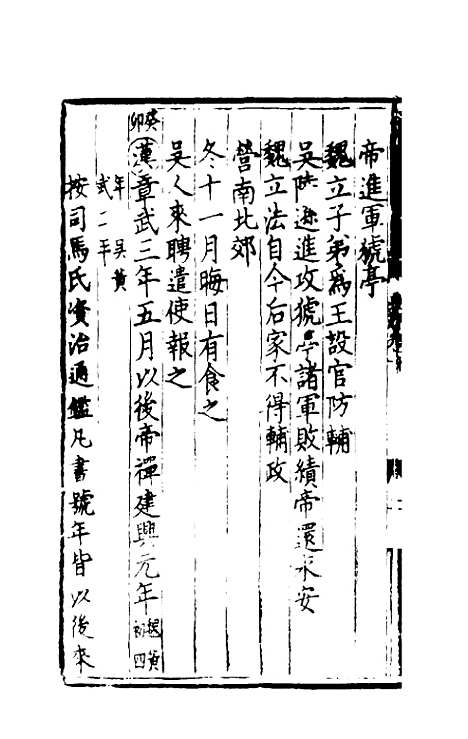 帝進軍猇亭
魏立子弟爲王設官防輔
吳陸遜進攻猇亭諸軍敗績帝還永安
魏立法自今后家不得輔政
營南北郊
冬十一月晦日有食之
吳人來聘遣使報之
癸卯
漢章武三年五月以後帝禪建興元年魏黃初四
年吳黃武二年
按司馬氏資治通鑑凡書號年皆以後來